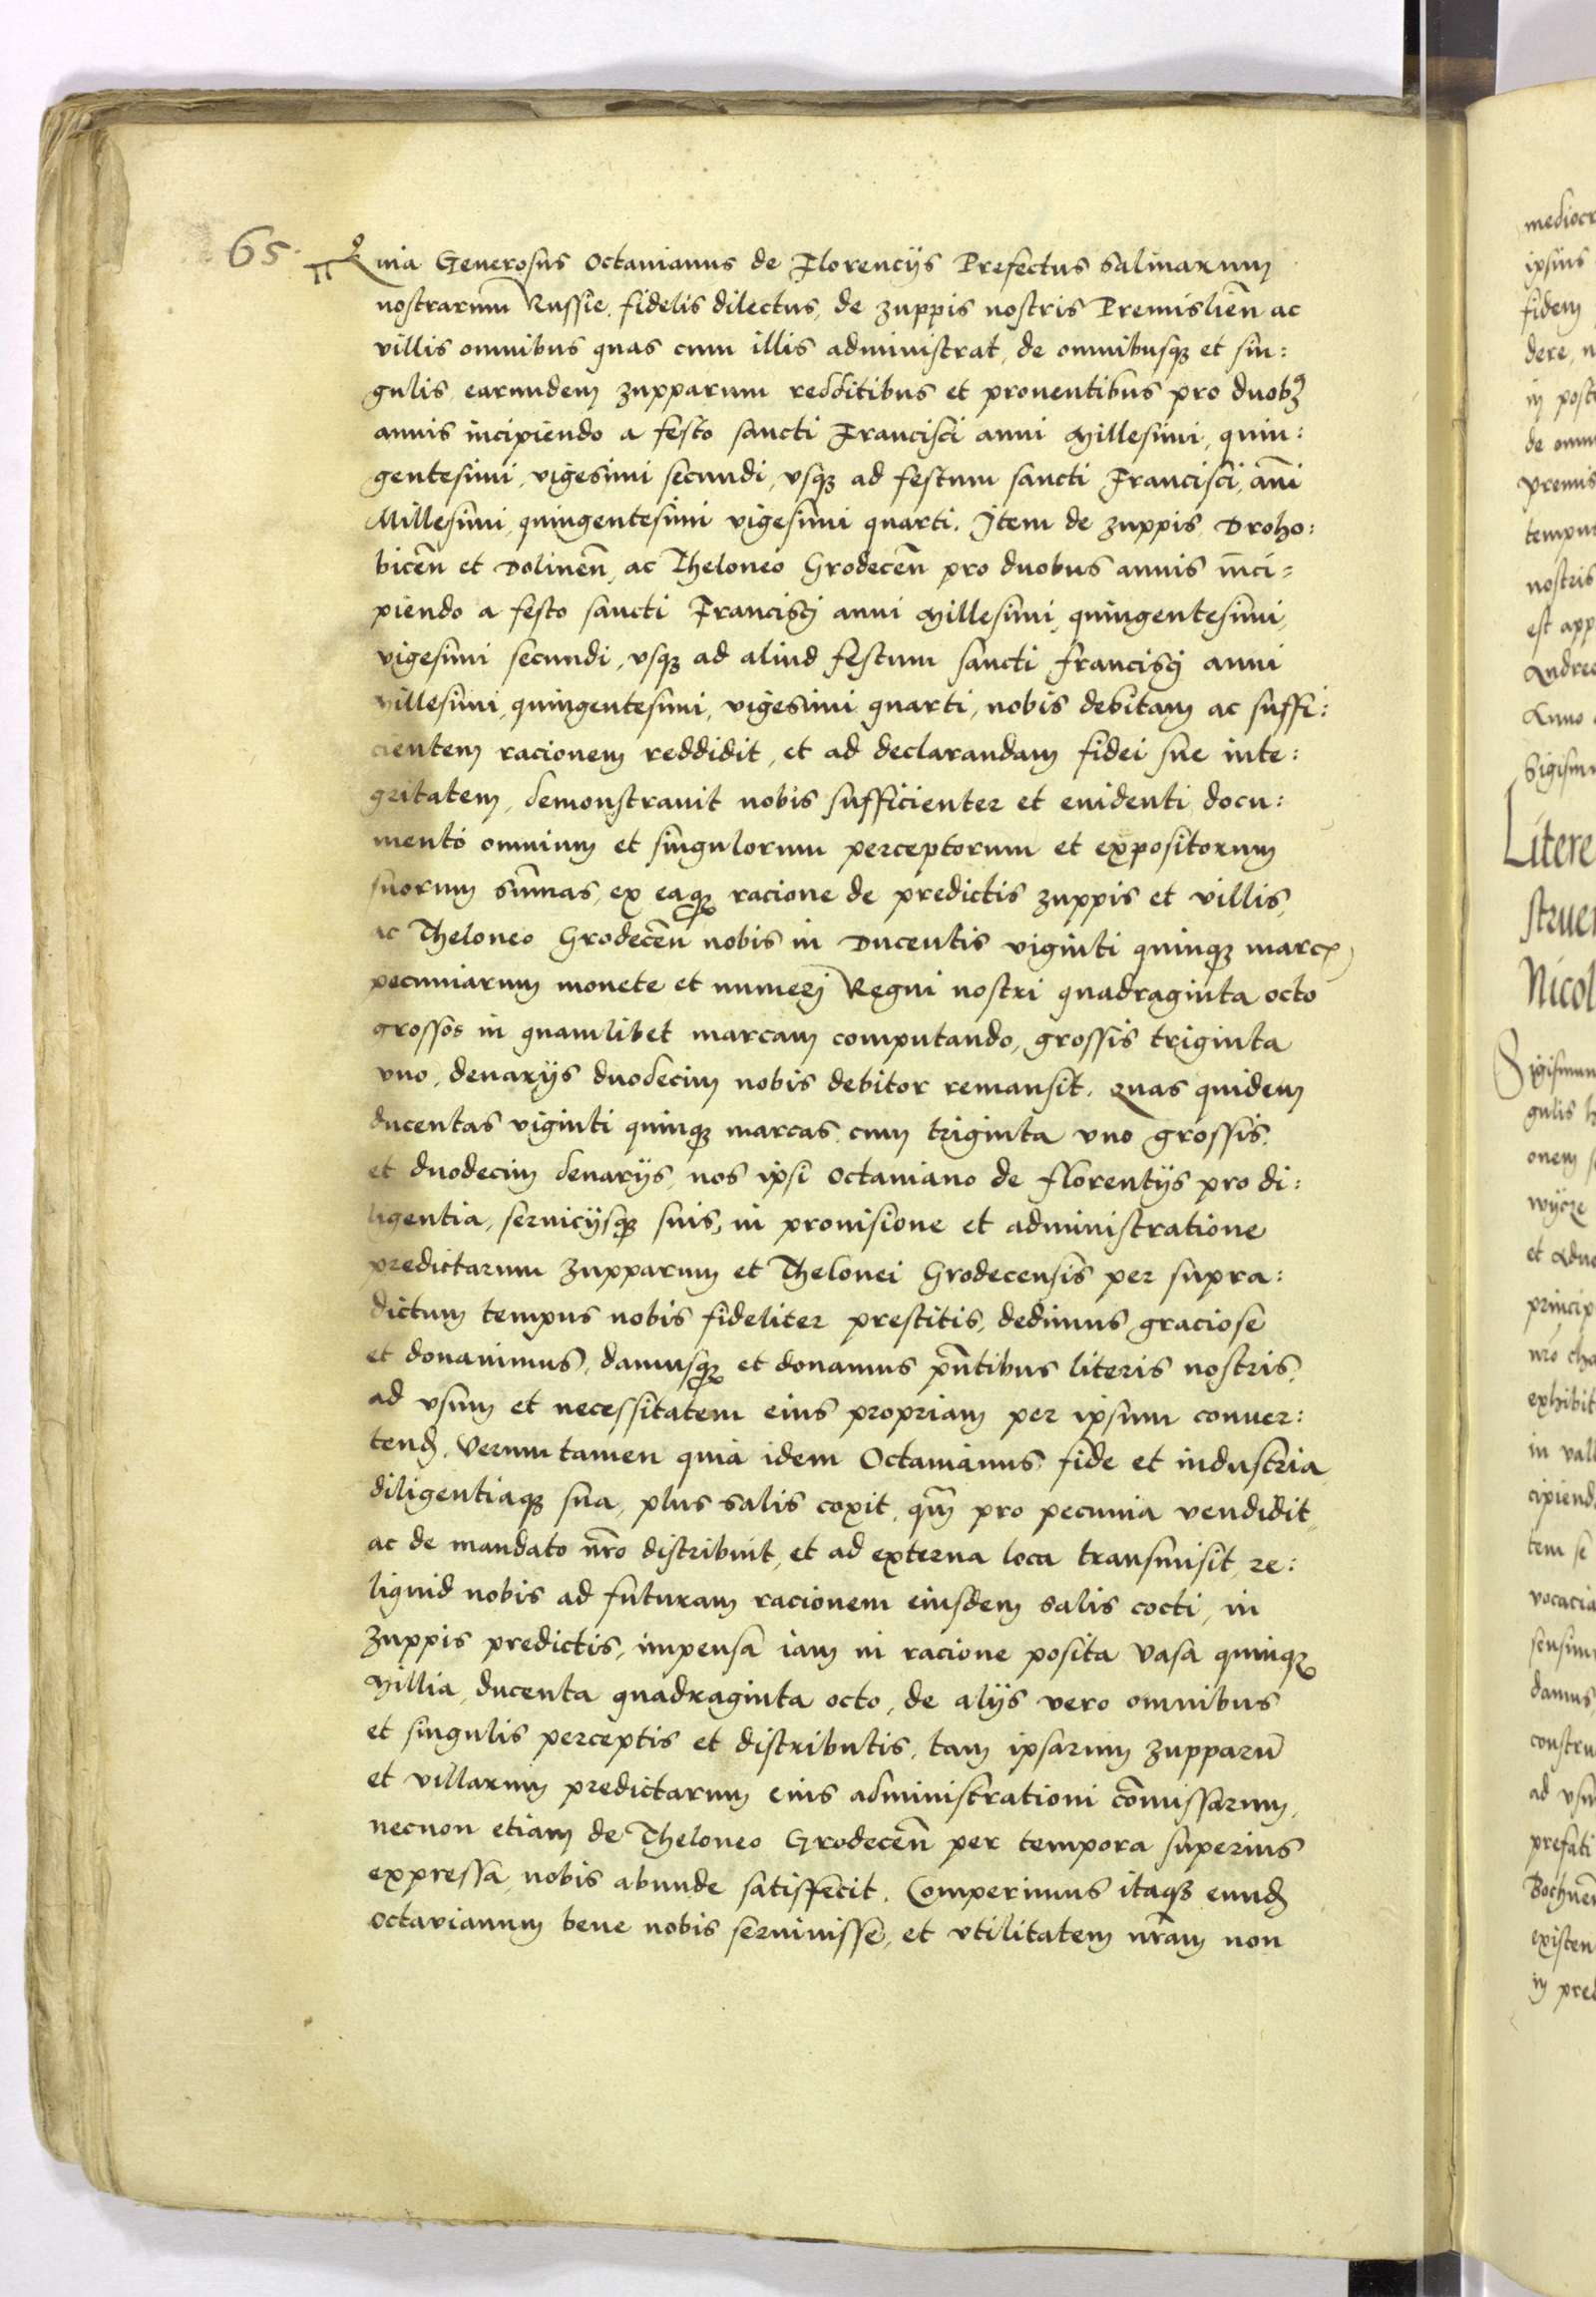 65.
Quia Generosus Octauianus de Florencijs Prefectus Salinarum
nostrarum Russie, fidelis dilectus, de zuppis nostris Premislień ac
villis omnibus quas cum illis administrat, de omnibusqʒ et sin:
gulis earundem zupparum redditibus et prouentibus pro duobʒ
annis incipiendo a festo sancti Francisci anni Millesimi, quin:
gentesimi, vigesimi secundi, vsqʒ ad festum sancti Francisci, añi
Millesimi, quingentesimi vigesimi quarti. Item de zuppis Droho:
biceñ et Dolineñ, ac Theloneo Grodeceñ pro duobus annis inci=
piendo a festo sancti Francisci anni Millesimi, quingentesimi,
vigesimi secundi, vsqʒ ad aliud festum sancti francisci anni
Millesimi, quingentesimi, vigesimi quarti, nobis debitam ac suffi:
cientem racionem reddidit, et ad declarandam fidei sue inte:
gritatem, demonstrauit nobis sufficienter et euidenti docu:
mento omnium et singulorum perceptorum et expositorum
suorum sum̃as, ex eaqʒ racione de predictis zuppis et villis,
ac Theloneo Grodeceñ nobis in Ducentis viginti quinqʒ marcꝭ
pecuniarum monete et numeri Regni nostri quadraginta octo
grossos in quamlibet marcam computando, grossis triginta
vno, denarijs duodecim nobis debitor remansit. Quas quidem
ducentas viginti quinqʒ marcas cum triginta vno grossis,
et duodecim denarijs, nos ipsi Octauiano de florentijs pro di:
ligentia, seruicijsqʒ suis, in prouisione et administratione
predictarum zupparum et Thelonei Grodecensis per supra:
dictum tempus nobis fideliter prestitis, dedimus graciose
et donauimus, damusqʒ et donamus p̃ntibus literis nostris,
ad vsum et necessitatem eius propriam per ipsum conuer:
tend̃. Verumtamen quia idem Octauianus fide et industria
diligentiaqʒ sua, plus salis coxit, qm̃ pro pecunia vendidit
ac de mandato nr̃o distribuit, et ad externa loca transmisit, re:
liquid nobis ad futuram racionem eiusdem salis cocti, in
zuppis predictis, impensa iam in racione posita Vasa quinqʒ
Millia, ducenta quadraginta octo, de alijs vero omnibus
et singulis perceptis et distributis, tam ipsarum zupparũ
et villarum predictarum eius administrationi com̃issarum,
necnon etiam de Theloneo Grodeceñ per tempora superius
expressa, nobis abunde satisfecit. Comperimus itaqʒ eund̃
Octauianum bene nobis seruiuisse, et vtilitatem nr̃am non
ipsius
fidem
dere,
de
tempus
nostris
Anno
Litere
Nicol
onem
et
exhibit
danus
ad vsu
prefati
existen